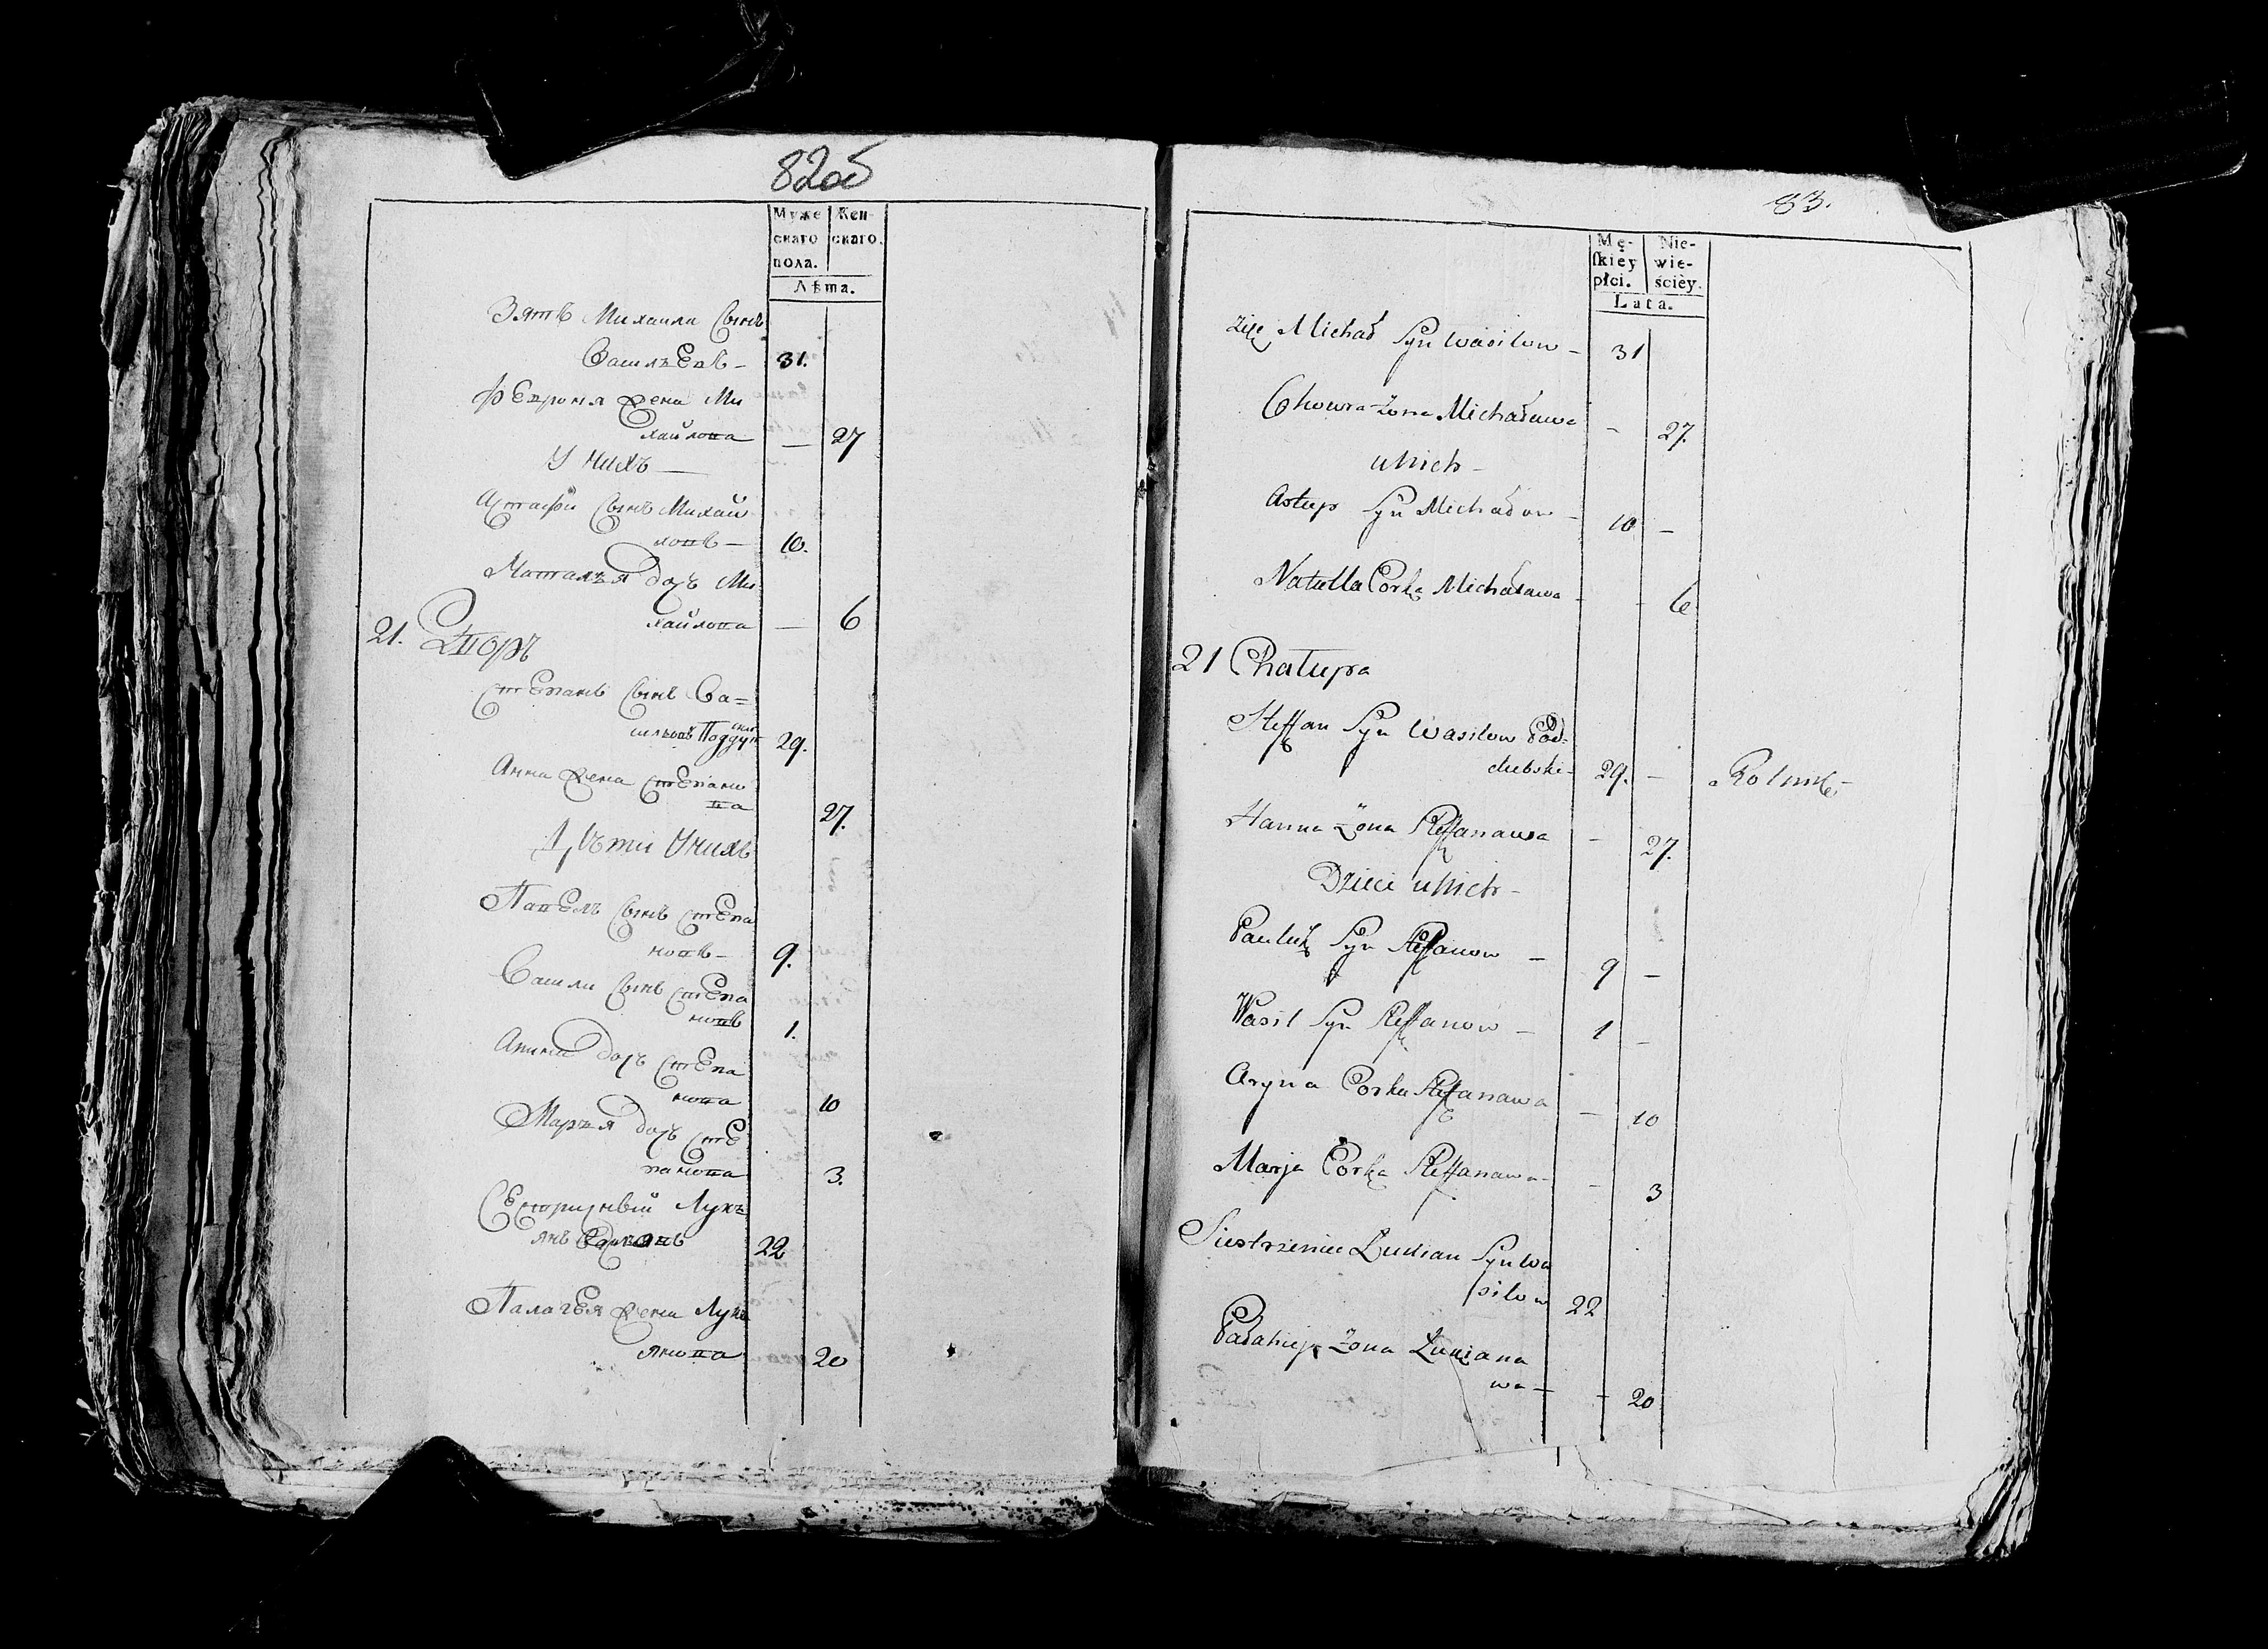 82об
Муже
скаго
пола.
Жен-
скаго.
Лѣта.
Зять Михаила Сынъ
Васильевъ - 31.
Февроня жена Ми
хайлова — 27
У нихъ —
Астафи Сынъ Михай
ловъ — 10.
Наталья дочь Ми
хайлова — 6
21. Дворъ
Степанъ Сынъ Ва=
сильовъ Поддуп 29.
Анна жена Степано
ва 27.
Дѣти Унихъ
Павелъ Сынъ Степа
новъ - 9.
Васили Сынъ Степа
новъ 1.
Арина дочь Степа
нова 10
Марья дочь Сте
панова 3.
Сестричный Лукь
янъ 22
Палагея жена Лукь
янова 20
83.
Mę-
ſkiey
płci.
Nie-
wie-
ściey.
Lata.
Zięć Michał Syn Wasilow - 31
Chowra Żona Michaławа - 27.
u Nich -
Astap Syn Michałow - 10 -
Natalla Corka Michaławа - - 6
21 Chatupa
Steffan Syn Wasilow Pod=
dubski - 29. - Rolnik -
Hanna Żona Steffanawa - 27.
Dzieci u Nich -
Pauluk Syn Steffanow - 9 -
Wasil Syn Steffanow - 1 -
Aryna Corka Steffanawa - 10
Marja Corka Steffanawa - - 3
Siestrzeniec Łukian Syn Wa
silow 22
Pałahieja Żona Łukiana
wa - - 20